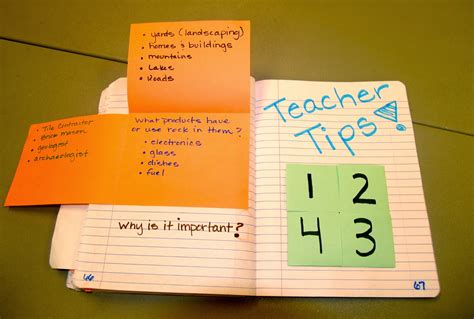 • yards (landscaping)
• homes & buildings
• mountains
• Lakes
• Roads
• Tile Contractor
• Brick Mason
• geologist
• archaeologist
What products have
or use rock in them?
• electronics
• glass
• dishes
• fuel
Why is it important?
66
Teacher
Tips!
1 2
4 3
67